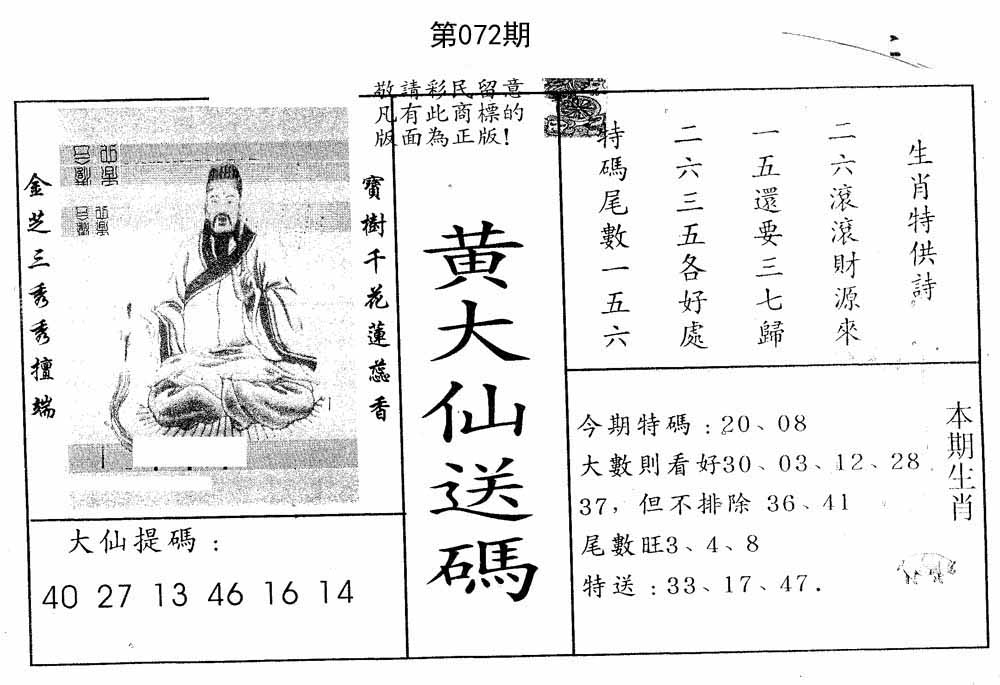 第072期
敬請彩民留意
凡有此商標的
版面為正版!
金芝三秀秀擅端
寶樹千花蓮蕊香
大仙提碼:
40 27 13 46 16 14
黄大仙送碼
生肖特供詩
二六滾滾財源來
一五還要三七歸
二六三五各好處
特碼尾數一五六
今期特碼:20、08
大數則看好30、03、12、28
37,但不排除 36、41
尾數旺3、4、8
特送:33、17、47.
本期生肖